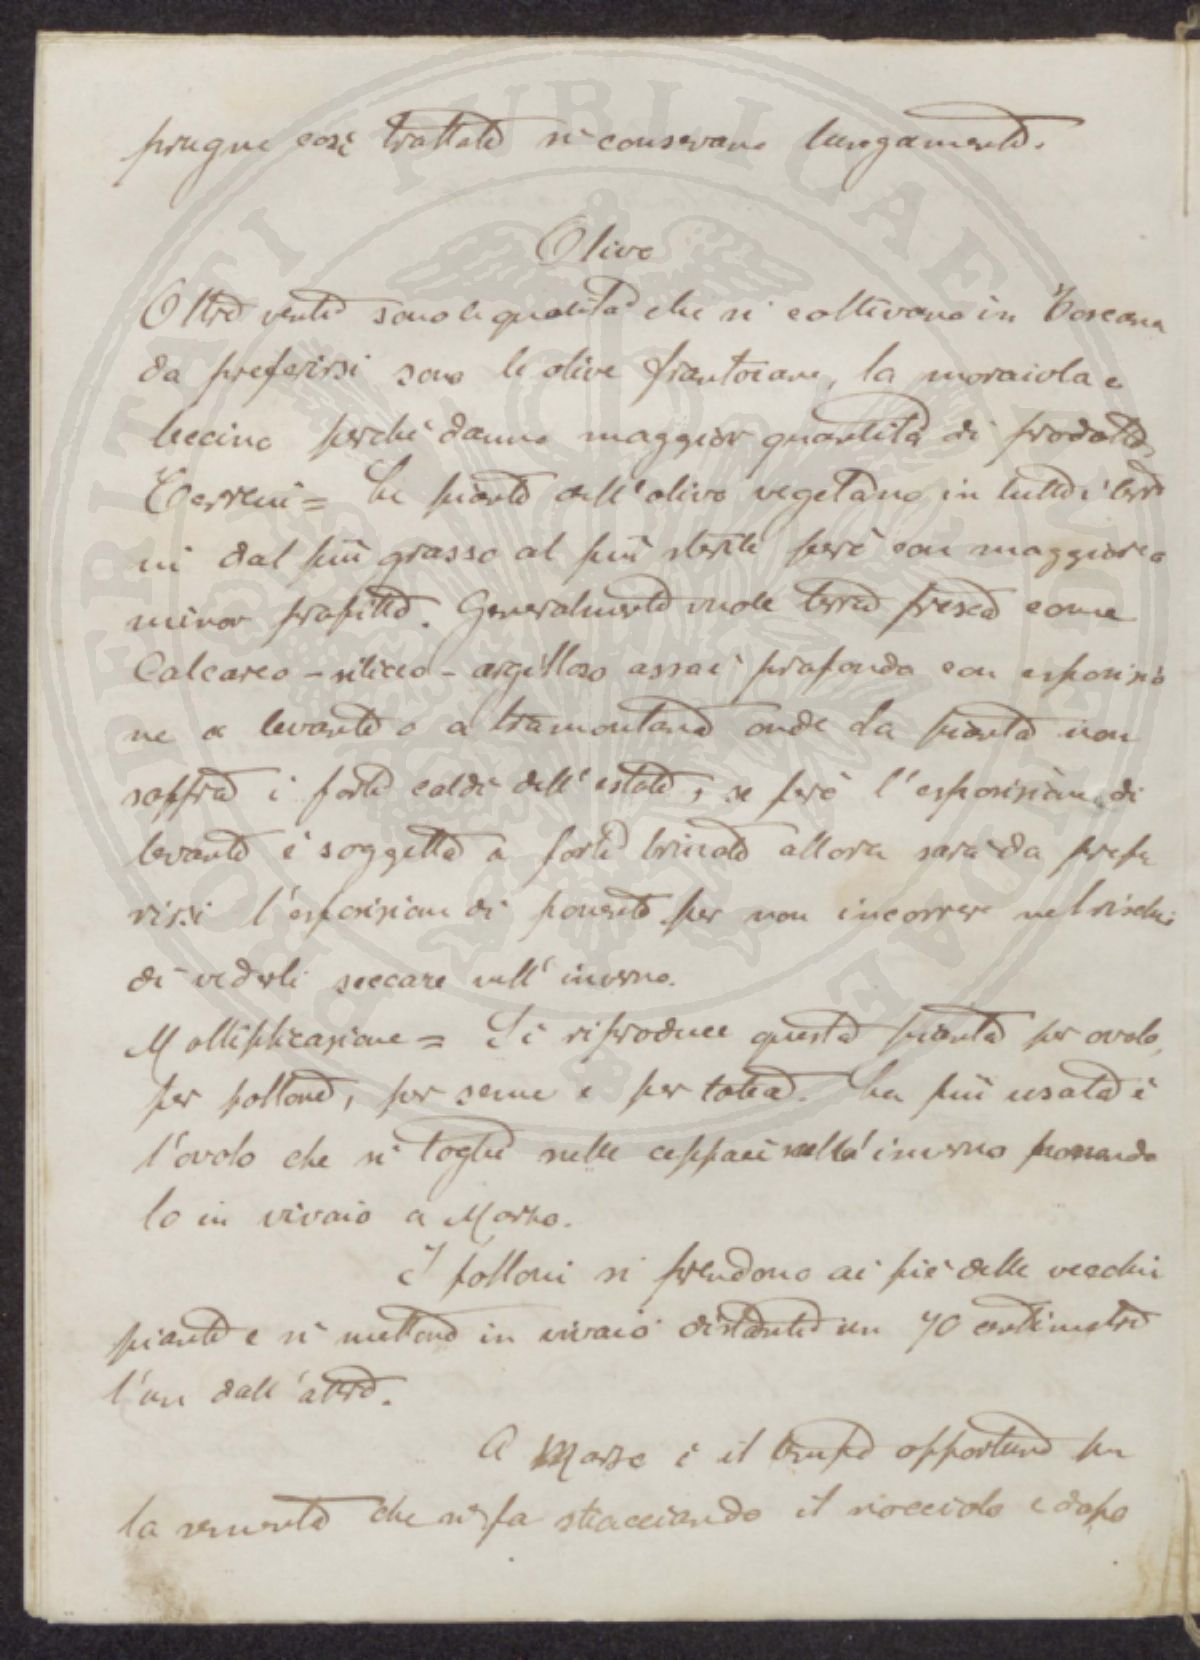 prugne così trattate si conservano lungamente.
Olivo
Oltre venti sono le qualità che si coltivano in Toscana
da preferirsi sono le olive frantoiane, la moraiola e
leccino perché danno maggior quantità di prodotto
Terreni = Le piante dell'olivo vegetano in tutti i terre
ni dal più grasso al più sterile però con maggiore o
minor profitto. Generalmente vuole terra fresca come
Calcareo - siliceo - argilloso assai profondo con esposizio
ne a levante o a tramontana onde la pianta non
soffra i forti caldi dell'estate, se però l'esposizione di
levante è soggetta a forti brinate allora sarà da prefe
rirsi l'esposizione di ponente per non incorrere nel rischio
di vederli seccare nell'inverno.
Moltiplicazione = Si riproduce questa pianta per ovolo,
per pollone, per seme e per talea. La più usata è
l'ovolo che si toglie nelle ceppaie nell'inverno ponendo
lo in vivaio a Marzo.
I polloni si prendono ai piè delle vecchie
piante e si mettono in vivaio distante un 70 centimetri
l'un dall'altro.
A Marzo è il tempo opportuno per
la semente che si fa stiacciando il nocciolo e dopo
PROSPERITATI PUBLICAE AUGENDAE